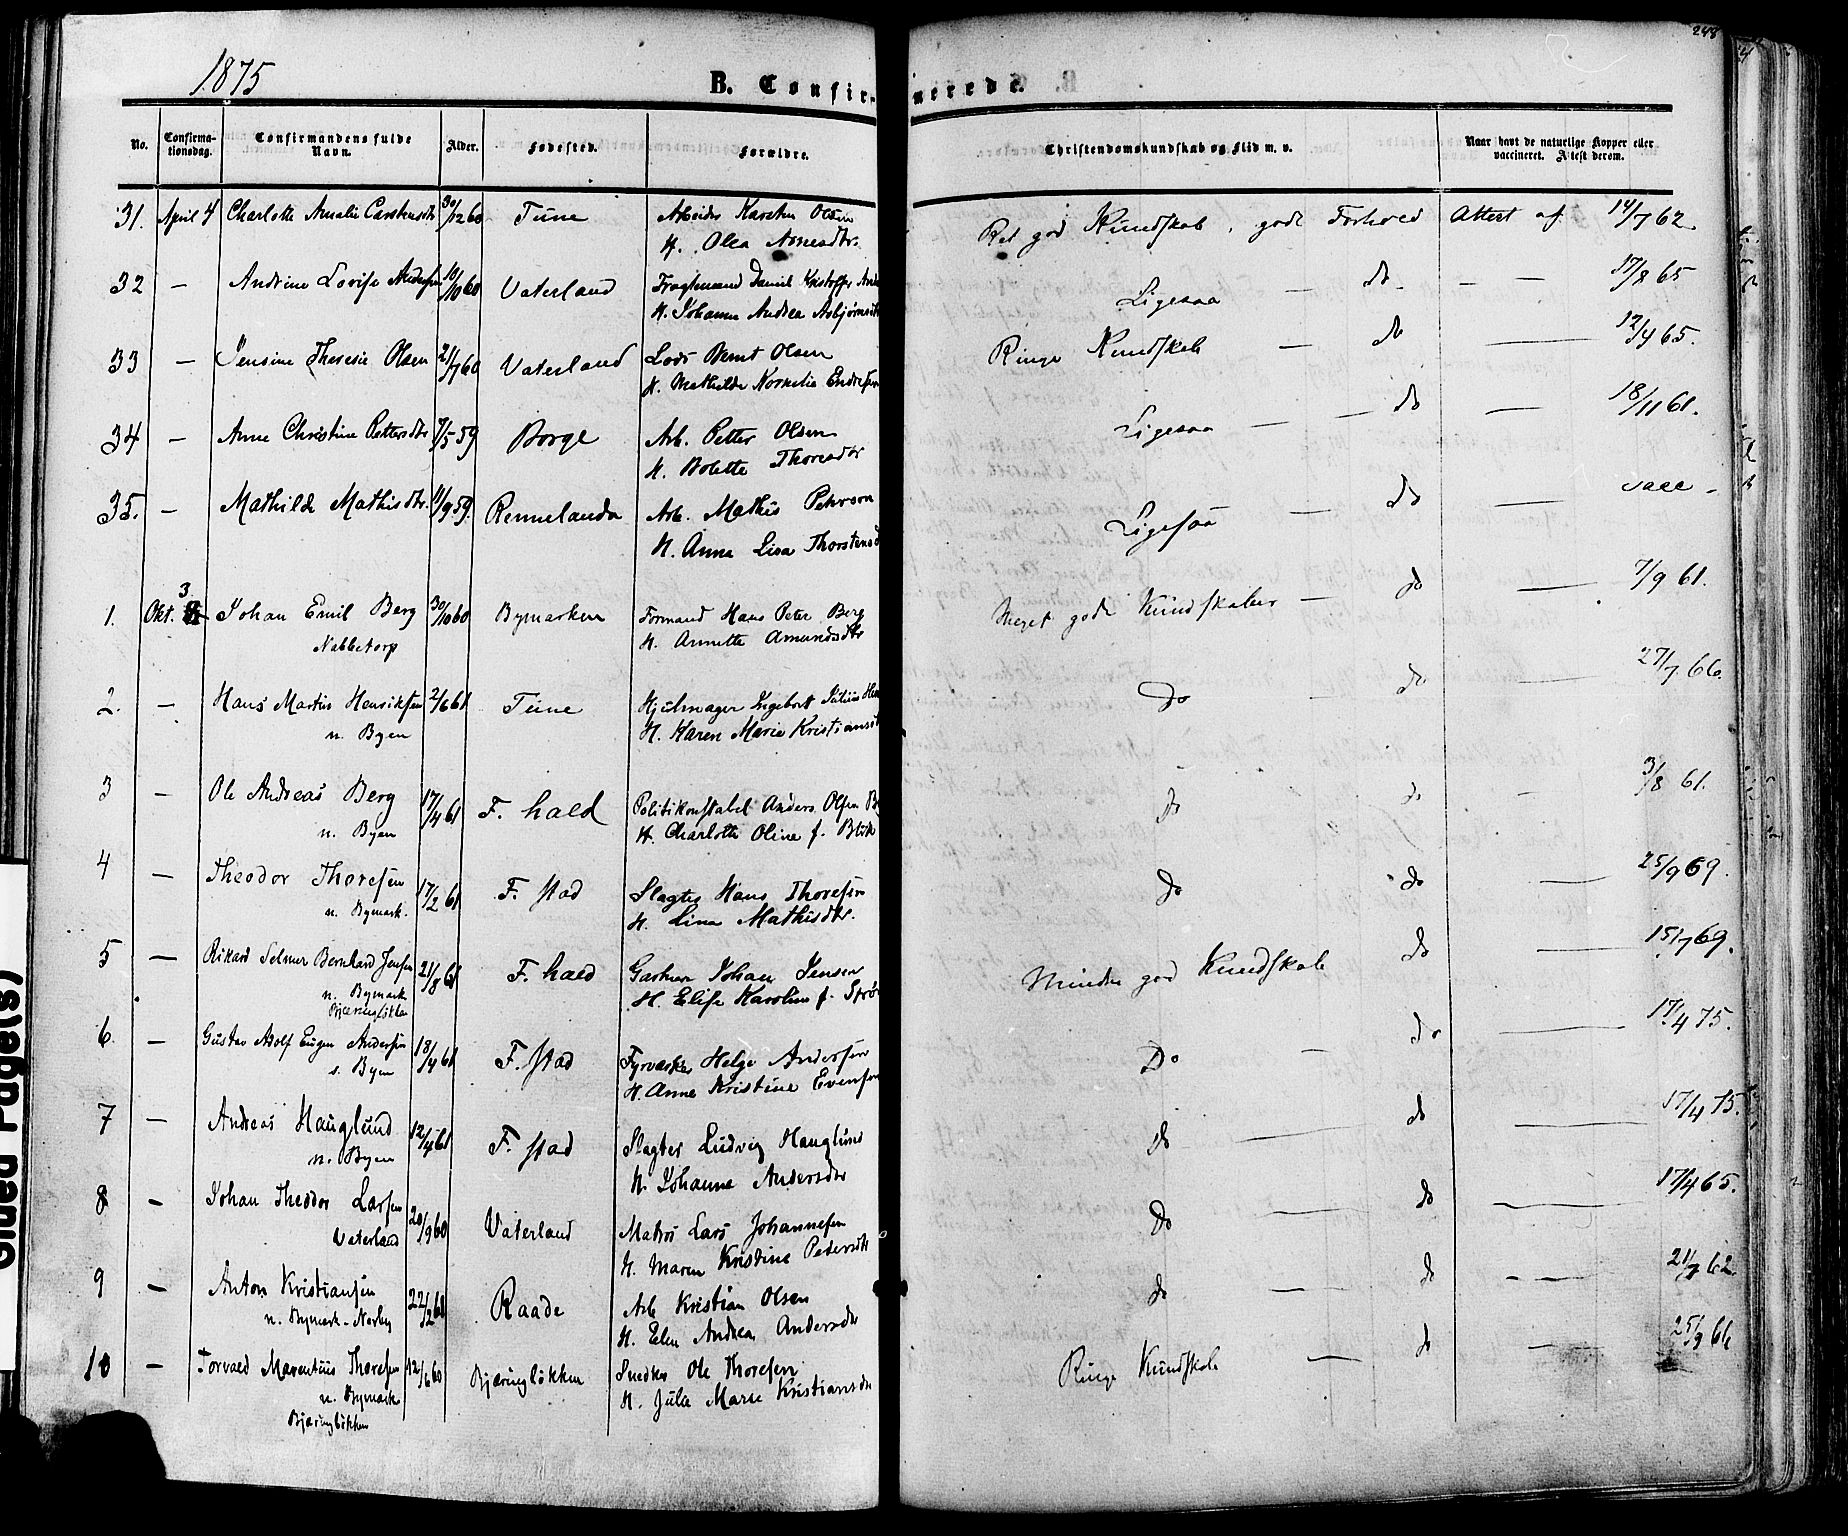 248
1875
B. Confirmerede.
No. Confirma-tionsdag. Confirmandens fulde Navn. Alder. Fødested. Forældre. Christendomskundskab og Flid m. v. Naar havt de naturlige Kopper eller vaccineret. Attest derom.
31. April 4 Charlotte Amalie Carstensdtr 30/12 60 Tune Arbeider Karsten Olsen Ret god Kundskab, godt Forhold Attest af 14/7 62
H. Olea Arnesdtr.
32 — Andrine Lovise Andersen 10/10 60 Vaterland Fragtemand Daniel Kristoffer Ande Ligesaa — do — — 17/8 65
H. Johanne Andrea Asbjørnsdt
33 — Jensine Theresie Olsen 21/7 60 Vaterland Lods Bernt Olsen Ringe Kundskab — do — 12/9 65.
H. Mathilde Kornelia Endresen
34 — Anne Christine Pettersdtr 7/5 59 Borge Arb. Petter Olsen Ligesaa — do — 18/11 61.
H. Bolette Thoresdtr
35. — Mathilde Mathisdtr. 11/9 59. Remelanda Arb. Mathis Petersson Ligesaa — do — vacc —
H. Anna Lisa Thorstensd
1. Okt. 3 Johan Emil Berg 30/10 60 Bymarken Formand Hans Peter Berg Meget gode Kundskaber — do — 7/9 61.
Nabbetorp H. Annette Amundsdtr
2. — Hans Martin Henriksen 2/6 61 Tune Hjulmager Ingebret Julius Hen Do — do — 27/7 66.
n. Byen H. Karen Marie Kristiansdt
3 — Ole Andreas Berg 17/4 61 F. hald Politikonstabel Anders Olsen B do do — 3/8 61.
n. Byen H. Charlotte Oline f. Blik
4 — Theodor Thoresen 17/2 61 F. stad Slagter Hans Thoresen do do — 25/9 69.
n. Bymark. H. Lina Mathisdtr.
5 — Rikard Selmer Bernhard Jensen 21/8 61 F. hald Gartner Johan Jensen Mindre god Kundskab do — 15/7 69.
n. Bymark H. Elise Karoline f. Strø
Bjæringløkken
6. — Gustav Adolf Eugen Andersen 18/4 61 F. stad Fyrværker Helge Andersen Do — do — 17/4 75.
s. Byen H. Anne Kristine Evensen
7 — Andreas Hauglund 12/4 61 F. stad Slagter Ludvig Hauglund do — do — 17/4 75.
n. Byen H. Johanne Andersdtr
8 — Johan Theodor Larsen 20/9 60 Vaterland Matros Lars Johannesen do — do — 17/4 65.
Vaterland H. Maren Kristine Pedersdtr
9 — Anton Kristiansen 22/2 60 Raade Arb Kristian Olsen do — do — — 21/7 62.
n. Bymark - Nørby H. Elen Andrea Andersdtr
10 — Torvald Marentius Thoresen 12/6 60 Bjæringløkken Snedker Ole Thoresen Ringe Kundskab — do — 25/9 66
n. Bymark H. Jula Marie Kristiansdtr
Bjæringløkken
Glued Page(s)